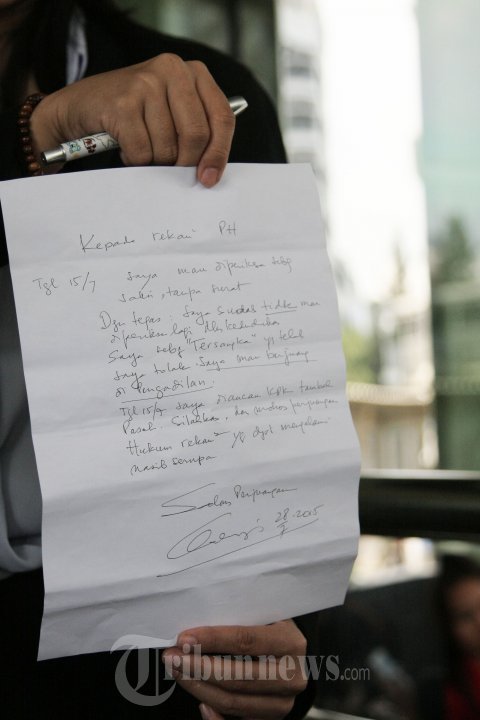 Kepada rekan² PH
Tgl 15/7 saya mau diperiksa sebg
saksi, tanpa surat
Dgn tegas: saya sudah tidak mau
diperiksa lagi dlm kedudukan
saya sebg "Tersangka" yg telah
saya tolak saya mau berjuang
di Pengadilan.
Tgl 15/7 saya diancam KPK tambah
Pasal. Silahkan, dan mohon perjuangan
Hukum rekan² yg dpt mengalami
nasib serupa
Salam Perjuangan
28/7-2015
Tribunnews.com